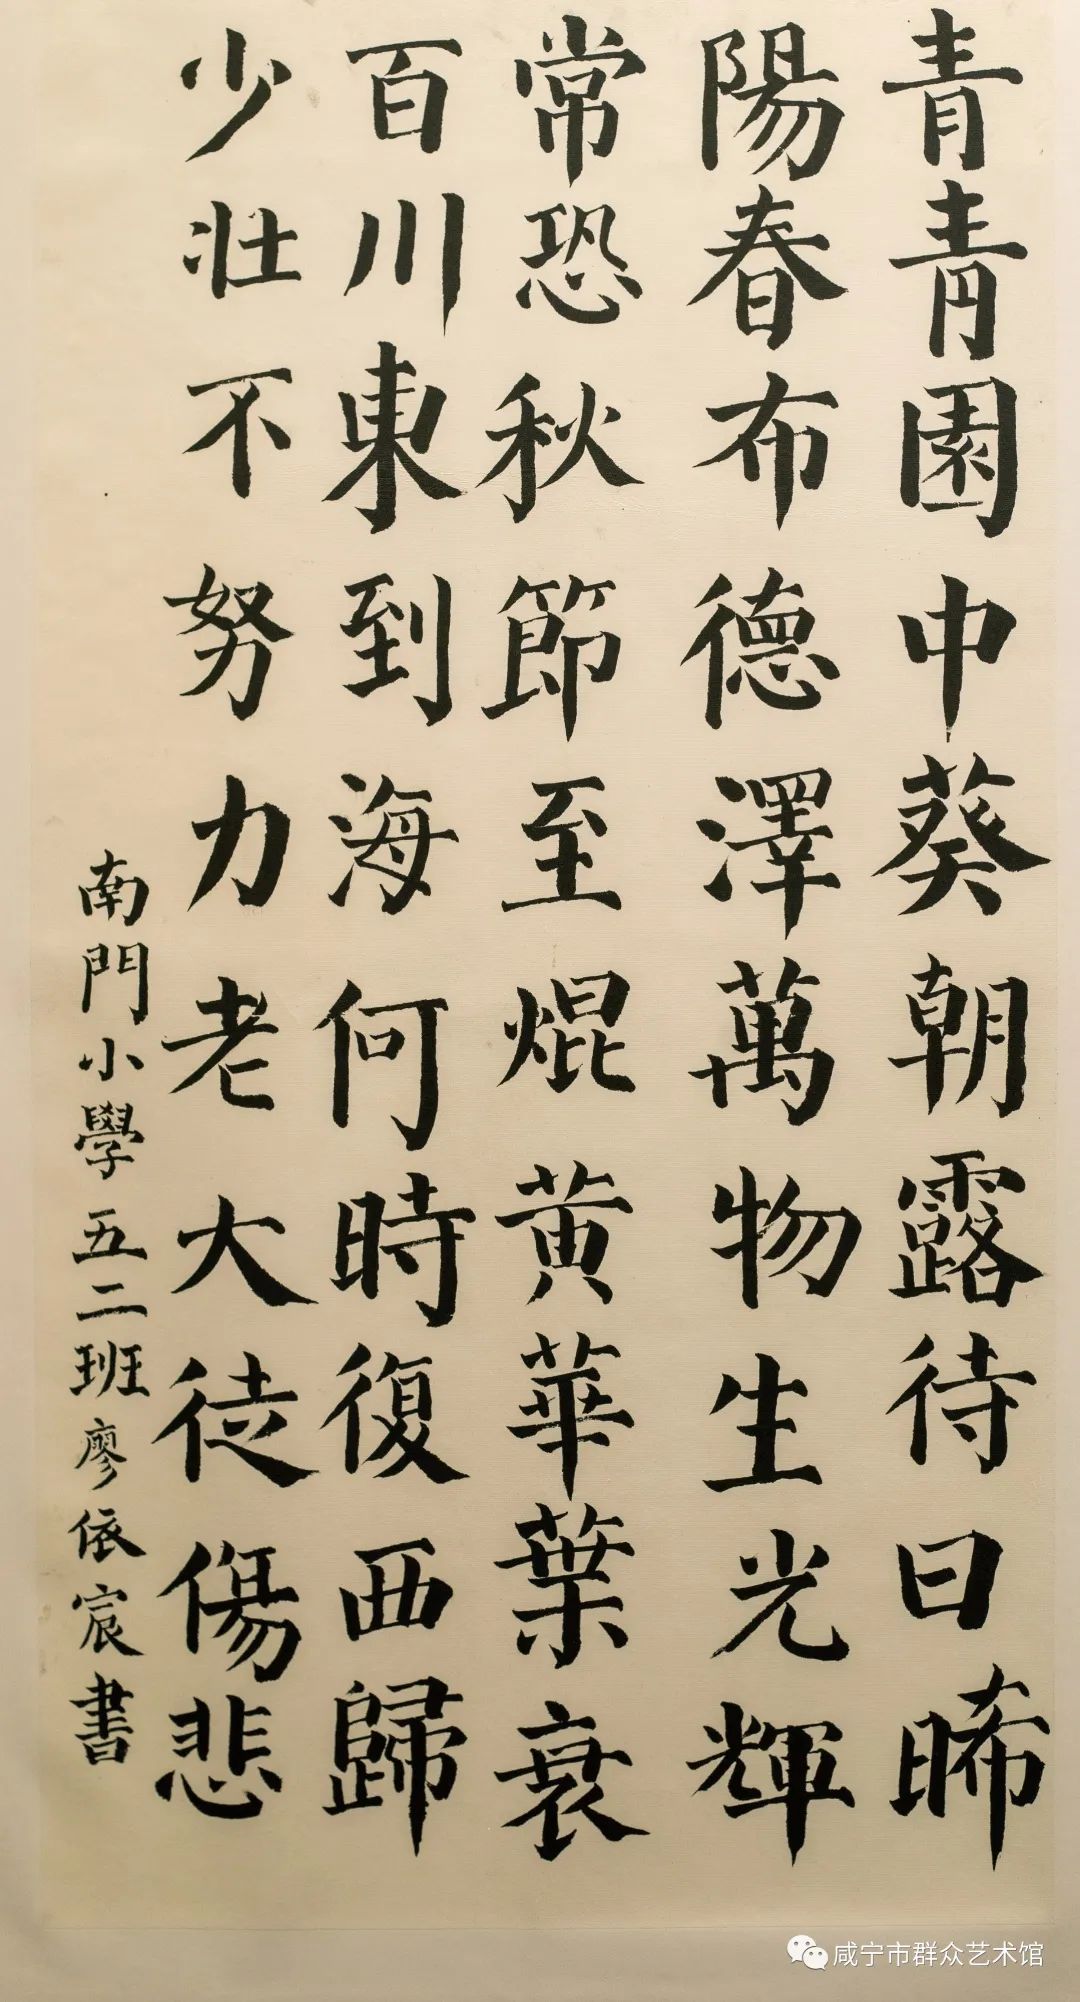 青青園中葵朝露待日晞
陽春布德澤萬物生光輝
常恐秋節至焜黃華葉衰
百川東到海何時復西歸
少壯不努力老大徒傷悲
南門小學五二班廖依宸書
咸宁市群众艺术馆